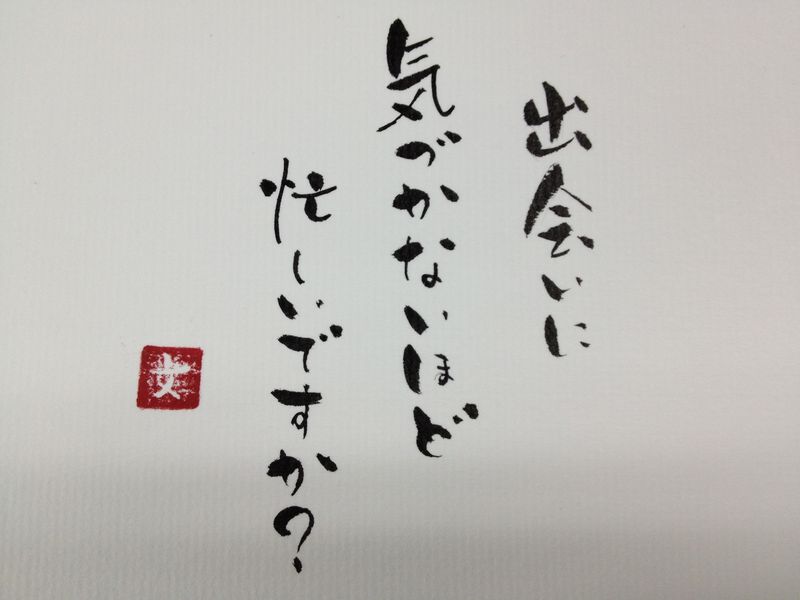 出会いに
気づかないほど
忙しいですか?